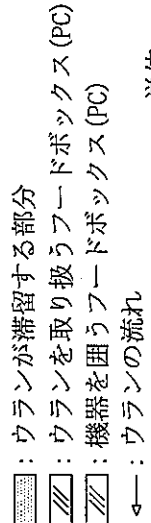 ：ウランが滞留する部分
：ウランを取り扱うフードボックス(PC)
：機器を囲うフードボックス(PC)
：ウランの流れ